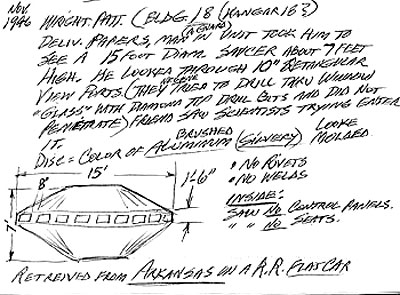 Nov.
1946
Wright. Patt. (Bldg. 18 (Hangar 18?)
Deliv. Papers, Man in Unit took him to
(a guard)
see a 15 foot Diam. Saucer about 7 feet
high. He looked through 10" Retangular
View Ports. (They tried to drill thru window
"Glass" with Diamond tip drill bits and did not
penetrate) Friend saw scientists trying enter
it.
Disc = Color of Brushed Aluminum (Silvery) Looke
Molded.
15'
8"
1'-6"
7'
• No Rivets
• No Welds
Inside:
Saw No Control Panels.
" " No Seats.
Retreived from Arkansas on a R.R. Flatcar